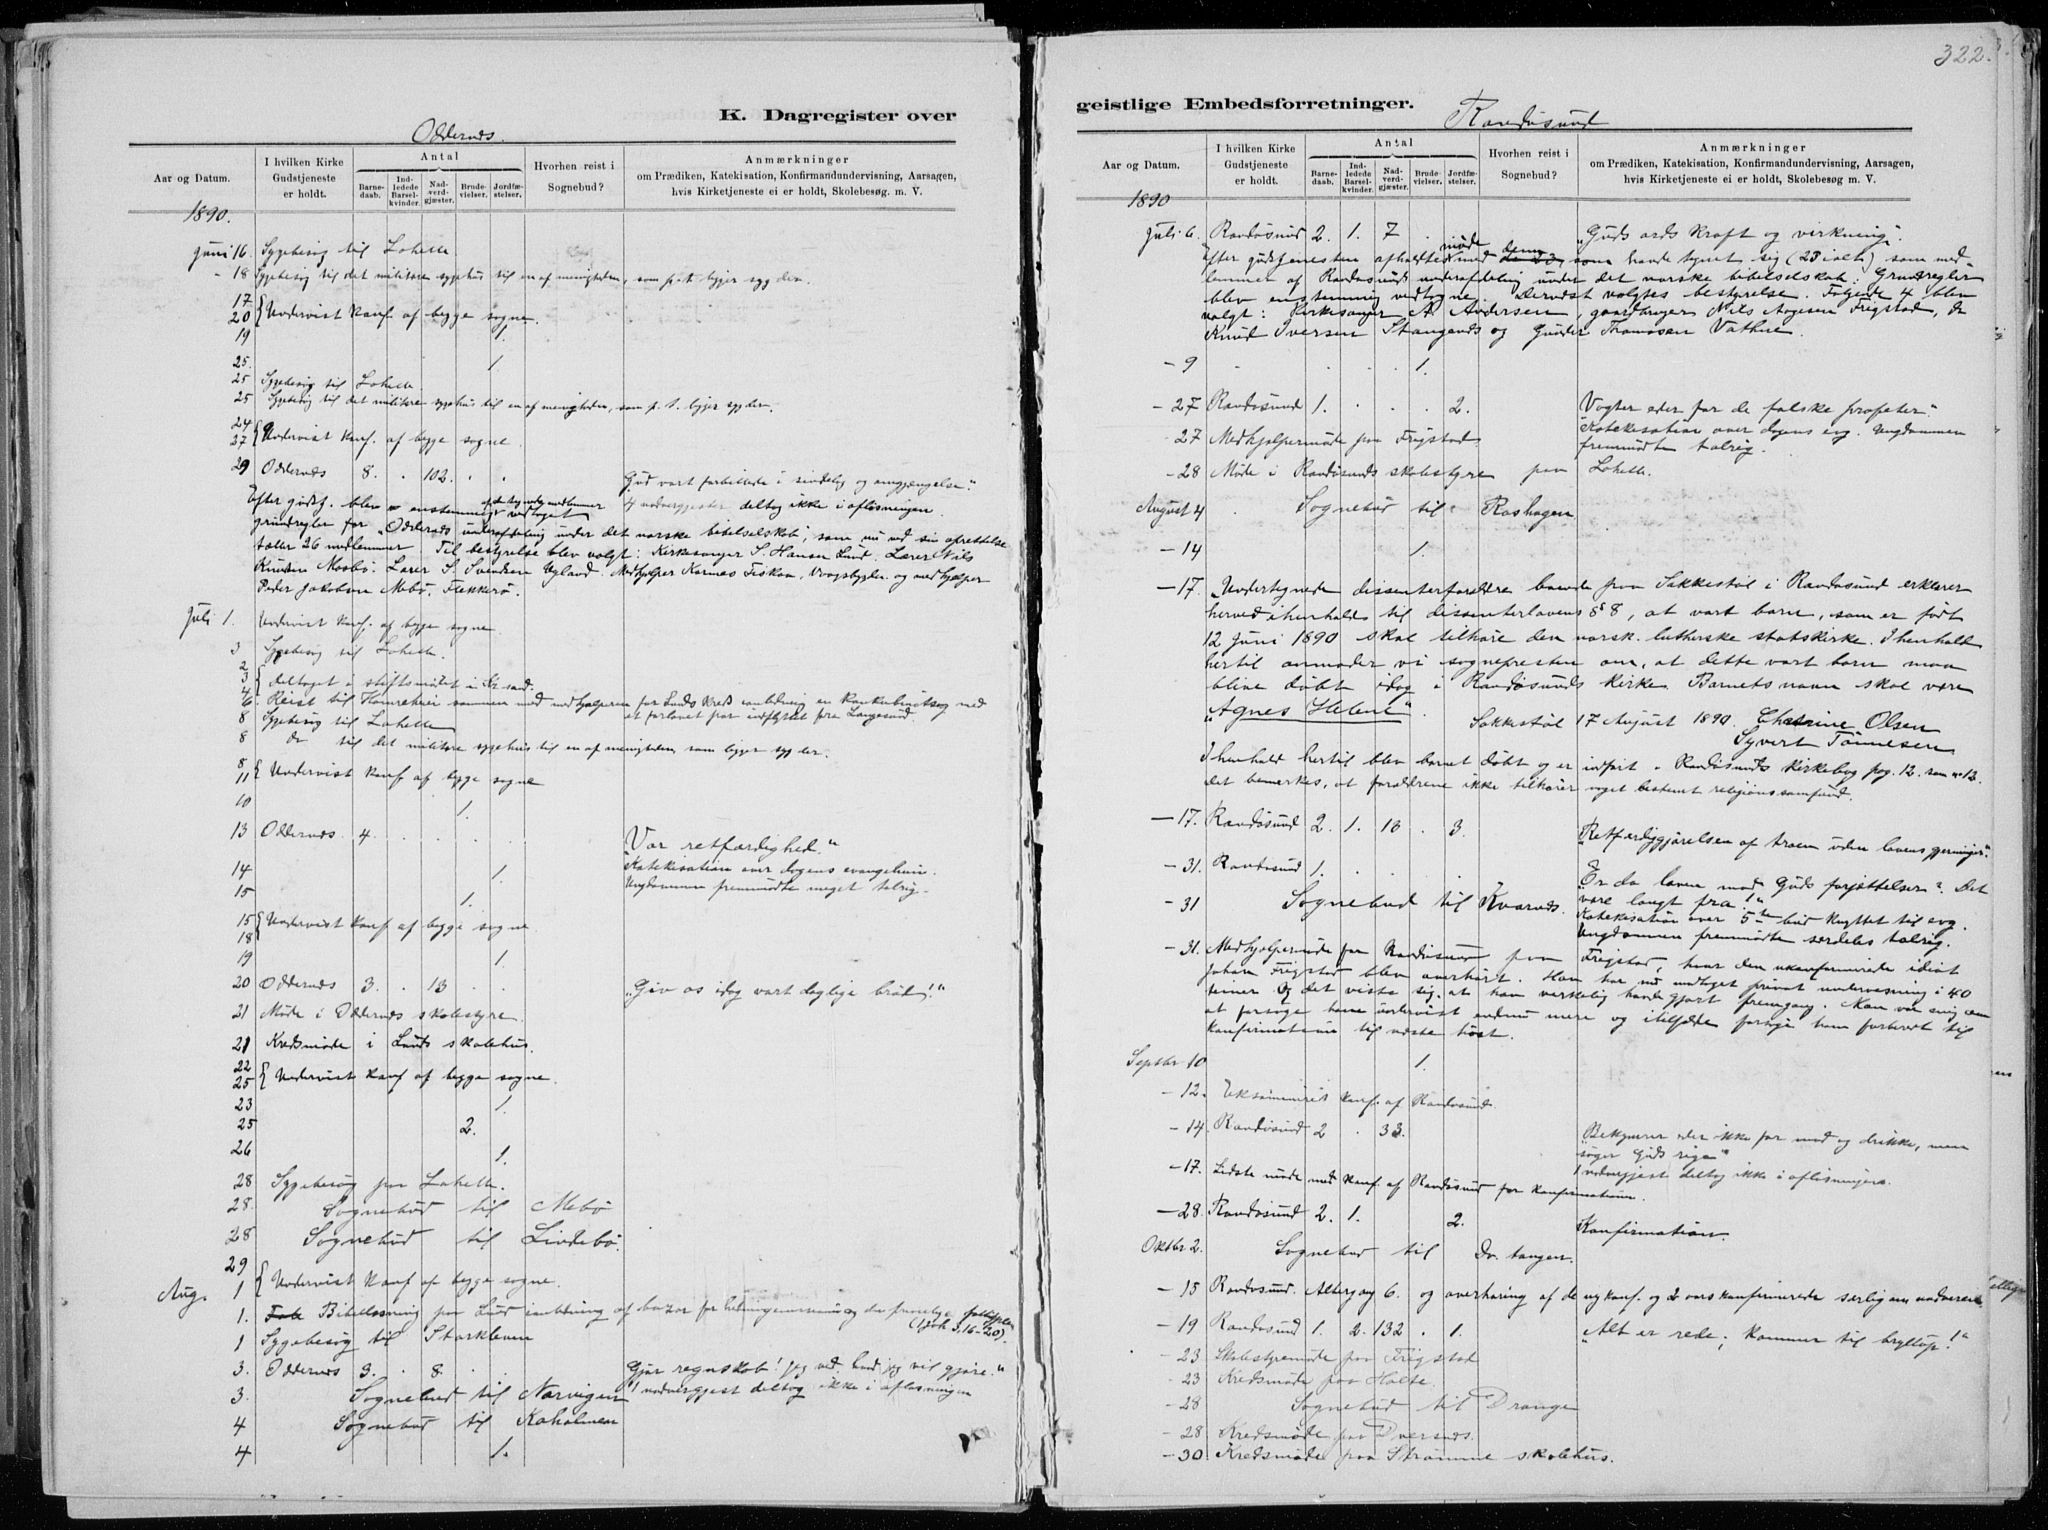 322.
K. Dagregister over
Oddernes.
Aar og Datum.
I hvilken Kirke Gudstjeneste er holdt.
Antal
Barnedaab.
Indledede Barselkvinder.
Nadverdgjæster.
Brudevielser.
Jordfæstelser.
Hvorhen reist i Sognebud?
Anmærkninger
om Prædiken, Katekisation, Konfirmandundervisning, Aarsagen,
hvis Kirketjeneste ei er holdt, Skolebesøg m. V.
1890.
Juni 16. Sygebesøg til Lohelle
- 18 Sygebesøg til det militære sygehus til en af menigheden, som p.t. ligger syg der.
17
20 { Undervist konf. af begge sogne.
19 1.
25. 1
25 Sygebesøg til Lohelle.
25 Sygebesøg til det militære sygehus til en af menigheden, som p.t. ligger syg der.
24
27 { Undervist konf. af begge sogne.
29 Oddernes 8. . 102. . . Gud vort forbillede i sindelag og omgjængelse."
4 nadvergjester deltog ikke i afløsningen.
Efter gudst. blev enstemmig vedtaget
grundregler for "Oddernes underafdeling under det norske bibelselskab", som nu ved sin oprettelse
tæller 26 medlemmer. Til bestyrelse blev valgt: Kirkesanger S. Hansen Lund, Lærer Nils
Knudsen Mosbø. Lærer S. Svendsen Ugland. Medhjælper Fiskaa, Vaagsbygden og medhjælper
Peder Jakobsen Mebø, Flekkerø.
Juli 1. Undervist konf. af begge sogne.
3 Sygebesøg til Lohelle.
2
3
4 { deltaget i stiftsmødet i Kr.sand.
6. Reist til sammen med medhjælperen for Lunds kreds
fra Langesund.
8 Sygebesøg til Lohelle
8 do til det militære sygehus til en af menigheden, som ligger syg der.
8
11 { Undervist konf. af begge sogne
10 1.
13 Oddernes 4. . . . . "Vor retfærdighed."
Katekisation over dagens evangelium.
14 1. Ungdommen fremmødte meget talrig.
15 1.
15
18 { Undervist konf. af begge sogne
19 1.
20 Oddernes 3. . 13 . . "Giv os idag vort daglige brød!"
21 Møde i Oddernes skolestyre.
21 Kredsmøde i Lunds skolehus.
22
25 { Undervist konf. af begge sogne.
23 1.
25 2.
26 1.
28 Sygebesøg paa Lohelle.
28. Sognebud til Mebø
28 Sognebud til Lindebø.
29
Aug. 1 { Undervist konf. af begge sogne.
1. Bibellæsning paa Lund i anledning af bazar for
(1 Joh 3,16-20).
1 Sygebesøg til
3. Oddernes 3. . 8. . Gjør regnskab! Jeg ved, hvad jeg vil gjøre."
1 nadvergjest deltog ikke i afløsningen
3. Sognebud til Narvigen
4 Sognebud til Koholmen
4 1.
geistlige Embedsforretninger.
Randøsund
Aar og Datum.
I hvilken Kirke Gudstjeneste er holdt.
Antal
Barnedaab.
Indledede Barselkvinder.
Nadverdgjæster.
Brudevielser.
Jordfæstelser.
Hvorhen reist i Sognebud?
Anmærkninger
om Prædiken, Katekisation, Konfirmandundervisning, Aarsagen,
hvis Kirketjeneste ei er holdt, Skolebesøg m. V.
1890
Juli 6. Randøsund 2. 1. 7 . "Guds ords kraft og virkning".
Efter gudstjenesten afholdtes møde med dem som havde tegnet sig (23 ialt) som med
lemmer af Randøsunds underafdeling under det norske bibelselskab. Grundregler
blev enstemmig vedtagne. Dernæst valgtes bestyrelse. Følgende 4 blev
valgt: Kirkesanger A. Andersen, gaardbruger Nils Aagesen Frigstad, do
Knud Iversen Stangenes og Gunder Thomasen Vathne.
- 9 . . . . 1.
- 27 Randøsund 1. . . . 2. Vogter eder for de falske profeter".
Katekisation over dagens evg. Ungdommen
fremmødte talrig.
- 27 Medhjælpermøde paa Frigstad
- 28 Møde i Randøsunds skolestyre paa Lohelle.
August 4 Sognebud til Roshagen
- 14 1.
- 17. "Undertegnede dissenterforældre boende paa Sukkestøl i Randøsund erklærer
herved i henhold til dissenterlovens § 8, at vort barn, som er født
12 Juni 1890 skal tilhøre den norsk. lutherske statskirke. I henhold
hertil anmoder vi sognepresten om, at dette vort barn maa
blive døbt idag i Randøsunds kirke. Barnets navn skal være
"Agnes Helene". Sukkestøl 17 August 1890. Chatrine Olsen
Syvert Tønnesen
I henhold hertil blev barnet døbt og er indført i Randøsunds kirkebog pag. 12. som no 12.
det bemerkes, at forældrene ikke tilhører noget bestemt religionssamfund.
- 17. Randøsund 2. 1. 18 . 3. "Retfærdiggjørelsen af troen uden lovens gjerninger."
- 31. Randøsund 1. . . . . Er da loven mod Guds forjættelser? Det
være langt fra!"
Katekisation over 5te bud knyttet til evg.
Ungdommen fremmødte særdeles talrig.
- 31 Sognebud til Kvarnes.
- 31. Medhjælpermøde for Randøsund paa Frigstad, hvor den ukonfirmerede idiot
Johan Frigstad blev overhørt. Han har nu modtaget privat undervisning i 40
timer og det viste sig, at han virkelig havde gjort fremgang. Man var enig om
at forsøge have undervist endnu mere og i tilfælde forsøge ham forberedt til
konfirmation til næste høst.
Septbr 10 1.
- 12. Eksamineret konf. af Randøsund.
- 14. Randøsund 2 . 33. "Bekymrer eder ikke for mad og drikke, men
søger Guds rige"
1 nadvergjest deltog ikke i afløsningen.
- 17. Sidste møde med konf. af Randøsund for konfirmationen.
- 28. Randøsund 2. 1. 2. Konfirmation.
Oktbr 2. Sognebud til Dv. tangen.
- 15 Randøsund. Altergang 6. og overhøring af de nykonf. og 2 aars konfirmerede særlig om nadveren
- 19 Randøsund 1. 2. 132 . 1. "Alt er rede; kommer til bryllup!"
- 23 Skolestyremøde paa Frigstad
- 23 Kredsmøde paa Holte.
- 28 Sognebud til Drange
- 28 Kredsmøde paa Dversnes.
- 30 Kredsmøde paa Strømme skolehus.